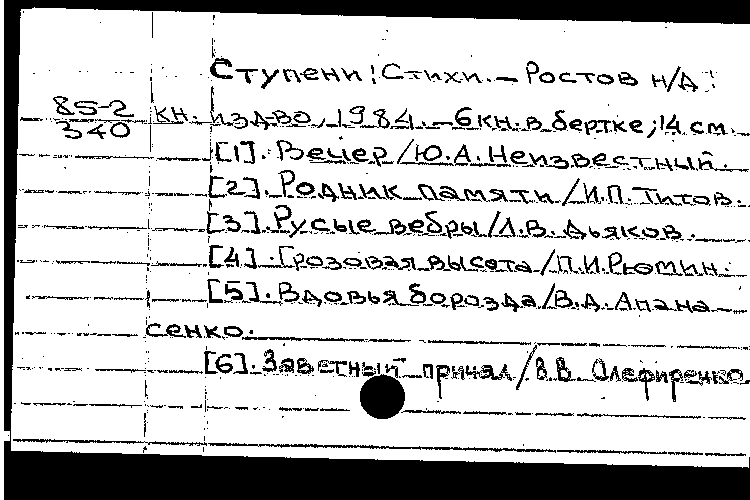 Ступени: Стихи. – Ростов н/Д:
85-2
340
кн. изд-во, 1984. – 6 кн. в бертке; 14 см.
[1]. Вечер / Ю.А. Неизвестный.
[2]. Родник памяти / И.П. Титов.
[3]. Русые вебры / Л.В. Дьяков.
[4]. Грозовая высота / П.И. Рюмин.
[5]. Вдовья борозда / В.Д. Апана-
сенко.
[6]. Заветный причал / В.В. Олефиренко